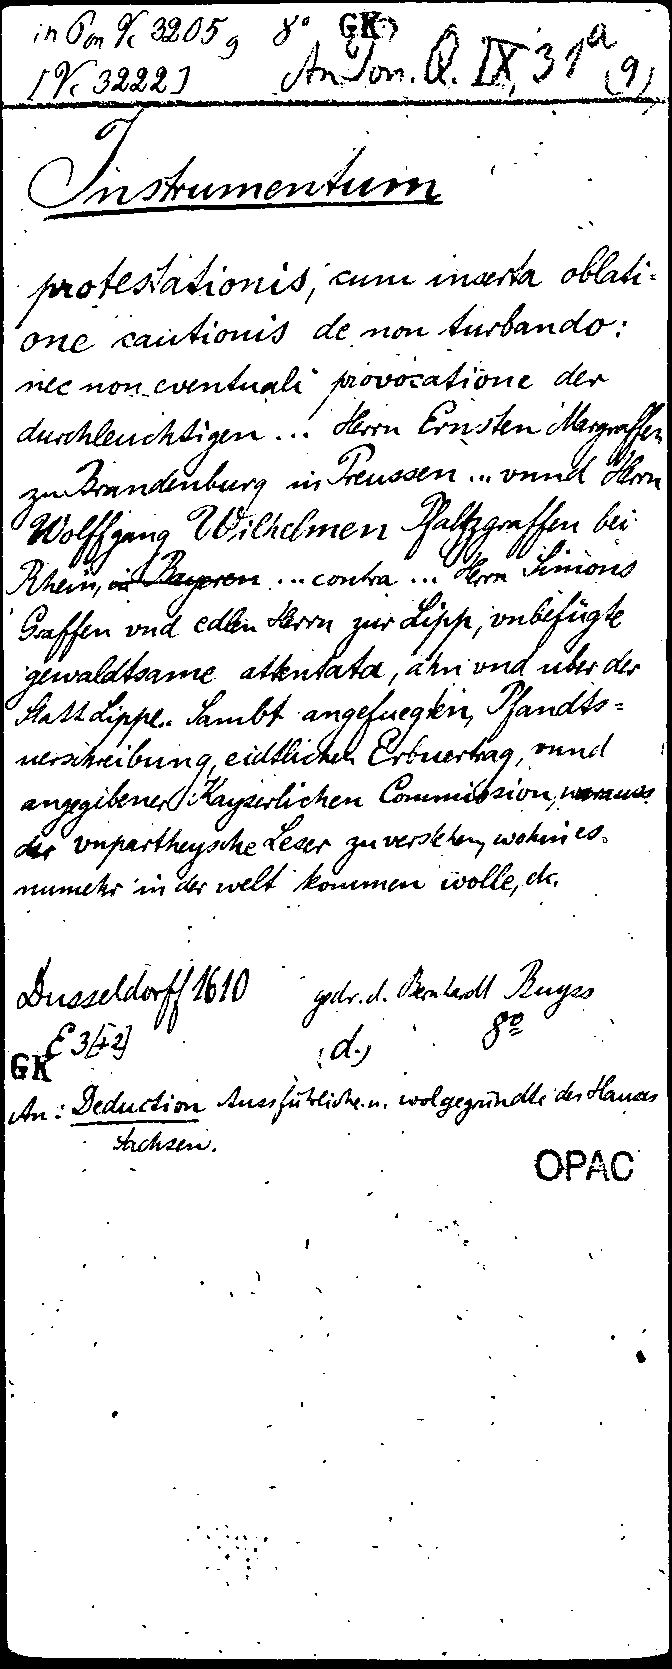 in Pon Vc 3205 g 8° GK
[Vc 3222] An Pon. Q. IX, 31a (9)
Instrumentum
protestationis, cum inserta oblati-
one cautionis de non turbando:
nec non eventuali provocatione der
durchleuchtigen ... Herrn Ernsten Margraffen
zu Brandenburg in Preussen ... vnnd Herrn
Wolffgang Wilhelmen Pfaltzgraffen bei
Rhein, in Bayren ... contra ... Herrn Simons
Graffen vnd edlen Herrn zur Lipp, vnbefügte
gewaldtsame attentata, ahn vnd uber der
Statt Lippe. Sambt angefuegten, Pfandts-
verschreibung, eidtlichen Erbuertrag, vnnd
angegibener Kayserlichen Commission, worauss
der vnpartheysche Leser zu verstehen, wohin es
numehr in der welt kommen wolle, etc.
Dusseldorff 1610 gedr. d. Bernhardt Buyss
8°
(d.)
GK
An: Deduction Ausführliche u. wolgegründte des Hauses
Sachsen.
OPAC